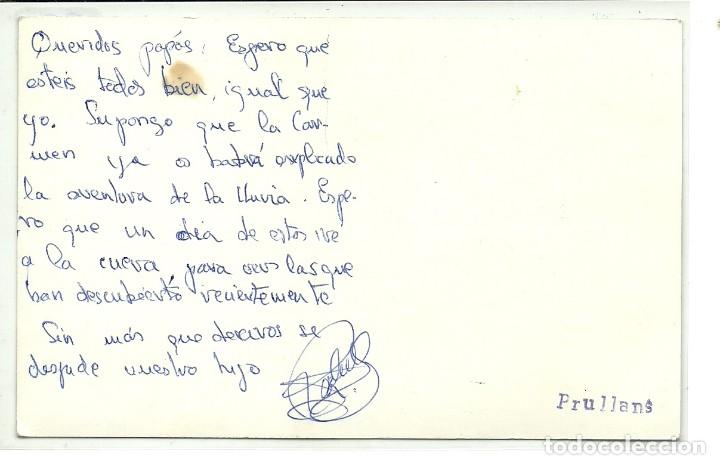 Queridos papás: Espero que
esteis todos bien, igual que
yo. Supongo que la Car-
men ya os habrá explicado
la aventura de la lluvia. Espe-
ro que un dia de estos iré
a la cueva, para ver las que
han descubierto recientemente
Sin más que deciros se
despide vuestro hijo
Prullans
todocoleccion